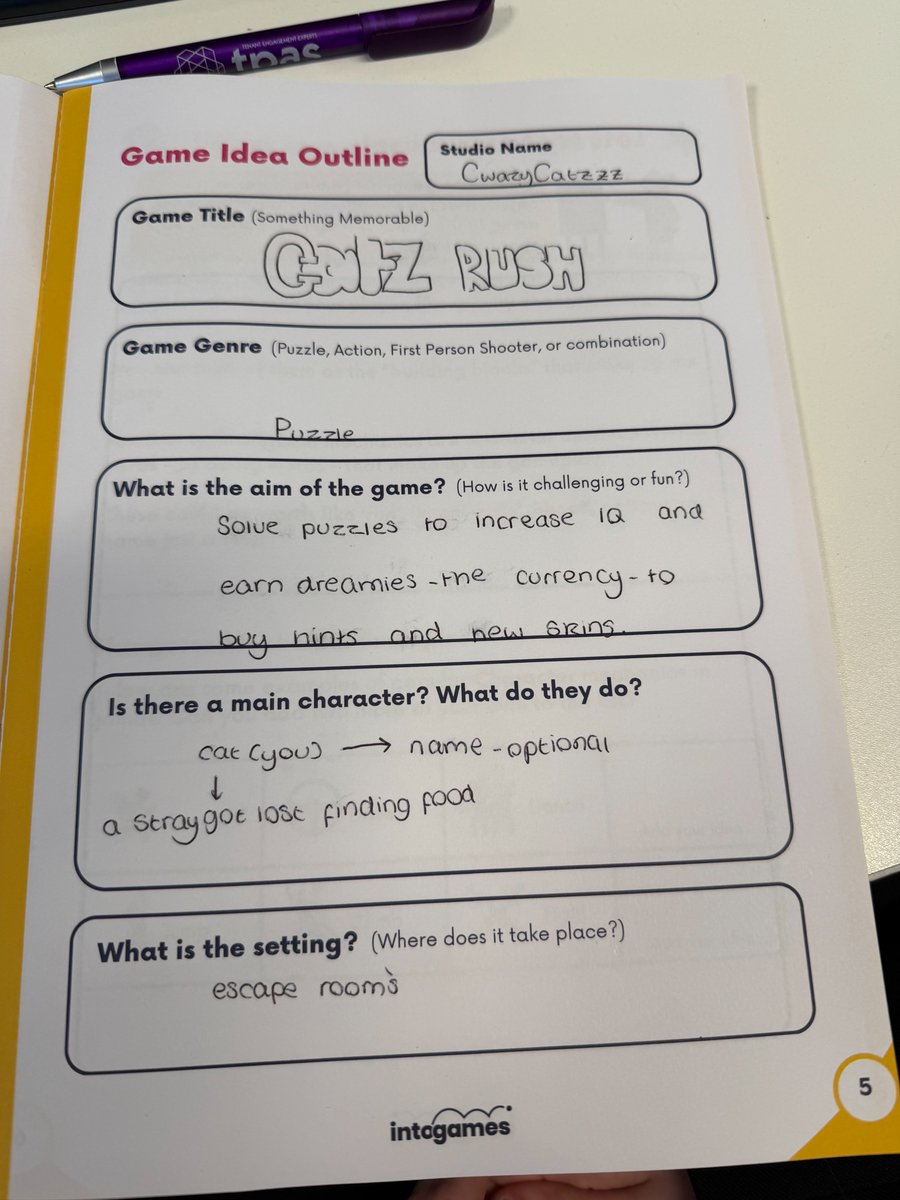 TENANT ENGAGEMENT EXPERTS
tpas
Game Idea Outline
Studio Name
CwazyCatzzz
Game Title (Something Memorable)
Catz RUSH
Game Genre (Puzzle, Action, First Person Shooter, or combination)
Puzzle
What is the aim of the game? (How is it challenging or fun?)
Solve puzzles to increase IQ and
earn dreamies - the currency - to
buy hints and new skins.
Is there a main character? What do they do?
cat (you) → name - optional
↓
a stray got lost finding food
What is the setting? (Where does it take place?)
escape room's
5
intogames